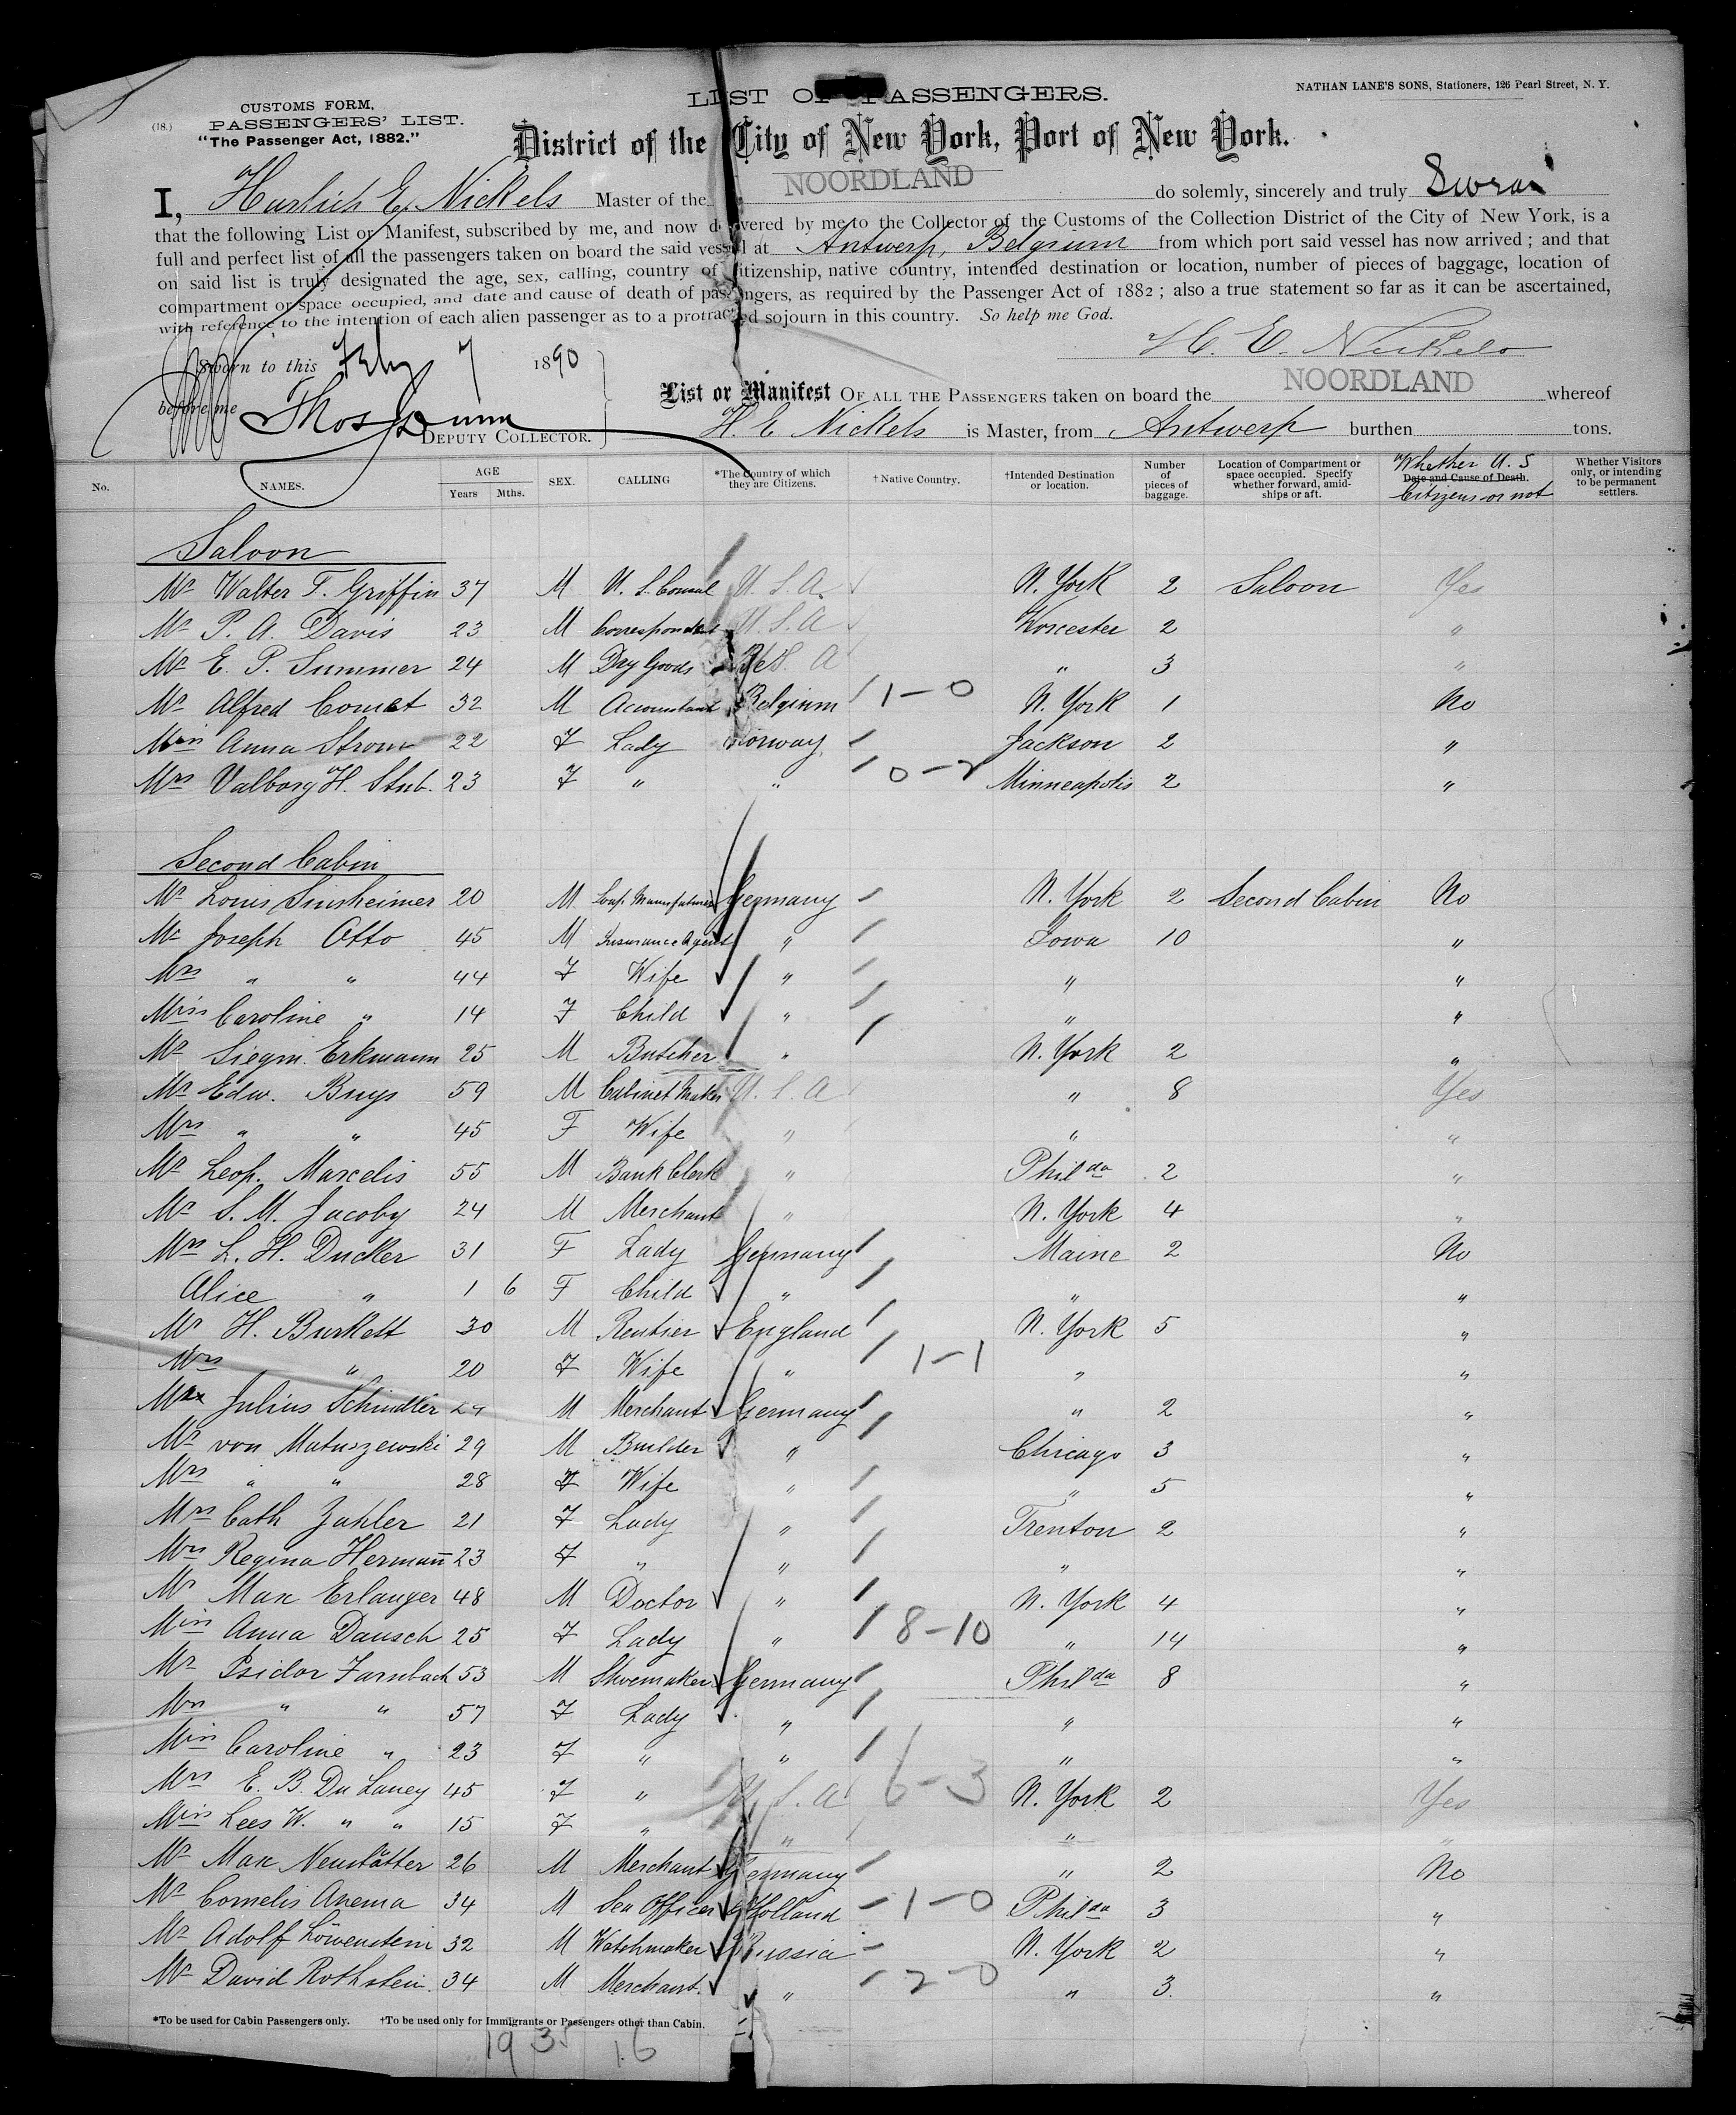 CUSTOMS FORM,
(18.) PASSENGERS' LIST.
"The Passenger Act, 1882."
LIST OF PASSENGERS.
NATHAN LANE'S SONS, Stationers, 126 Pearl Street, N. Y.
District of the City of New York, Port of New York.
I, E. Nickels Master of the NOORDLAND do solemnly, sincerely and truly Swear
that the following List or Manifest, subscribed by me, and now delivered by me to the Collector of the Customs of the Collection District of the City of New York, is a
full and perfect list of all the passengers taken on board the said vessel at Antwerp, Belgium from which port said vessel has now arrived ; and that
on said list is truly designated the age, sex, calling, country of citizenship, native country, intended destination or location, number of pieces of baggage, location of
compartment or space occupied, and date and cause of death of passengers, as required by the Passenger Act of 1882 ; also a true statement so far as it can be ascertained,
with reference to the intention of each alien passenger as to a protracted sojourn in this country. So help me God.
H. E. Nickels
Sworn to this Feby 7 1890
before me Thos Dunn
DEPUTY COLLECTOR.
List or Manifest OF ALL THE PASSENGERS taken on board the NOORDLAND whereof
H. E Nickels is Master, from Antwerp burthen tons.
No. NAMES. AGE Years Mths. SEX. CALLING *The Country of which they are Citizens. †Native Country. †Intended Destination or location. Number of pieces of baggage. Location of Compartment or space occupied. Specify whether forward, amidships or aft. Date and Cause of Death. Whether U. S Citizens or not Whether Visitors only, or intending to be permanent settlers.
Saloon
Mr Walter F. Griffin 37 M U. S. Consul U. S. A. N. York 2 Saloon Yes
Mr P. A. Davis 23 M Correspondent U. S. A Worcester 2 "
Mr E. P. Summer 24 M Dry Goods A " 3 "
Mr Alfred 32 M Accountant Belgium 1-0 N. York 1 No
Miss Anna Strom 22 F Lady Norway Jackson 2 "
Mrs Valborg H. Stub. 23 F " " 0-2 Minneapolis 2 "
Second Cabin
Mr Louis Sinsheimer 20 M Soap Manufacturer Germany N. York 2 Second Cabin No
Mr Joseph Otto 45 M Insurance Agent " Iowa 10 "
Mrs " " 44 F Wife " " "
Miss Caroline " 14 F Child " " "
Mr Siegm. Erkmann 25 M Butcher " N. York 2 "
Mr Edw. Buys 59 M Cabinet Maker U. S. A " 8 Yes
Mrs " " 45 F Wife " " "
Mr Leop. Marcelis 55 M Bank Clerk " Philda 2 "
Mr S. M. Jacoby 24 M Merchant " N. York 4 "
Mrs L. H. Ducker 31 F Lady Germany Maine 2 No
Alice " 1 6 F Child " " "
Mr H. Burkett 30 M Rentier England N. York 5 "
Mrs " 20 F Wife " 1-1 " "
Mr Julius Schindler M Merchant Germany " 2 "
Mr von Matuszewski 29 M Builder " Chicago 3 "
Mrs " " 28 F Wife " " 5 "
Mrs Cath Zahler 21 F Lady " Trenton 2 "
Mrs Regina Hermann 23 F " " " "
Mr Max Erlanger 48 M Doctor " N. York 4 "
Miss Anna Dausch 25 F Lady " 8-10 " 14 "
Mr Isidor Farnbach 53 M Shoemaker Germany Philda 8 "
Mrs " " 57 F Lady " " "
Miss Caroline " 23 F " " " "
Mrs E. B. Du Laney 45 F " U. S. A 6-3 N. York 2 Yes
Miss Lees W. " " 15 F " " " "
Mr Max Neustätter 26 M Merchant Germany " 2 No
Mr Cornelis Anema 34 M Sea Officer Holland 1-0 Philda 3 "
Mr Adolf Löwenstein 32 M Watchmaker Russia N. York 2 "
Mr David Rothstein. 34 M Merchant. " 2-0 " 3. "
*To be used for Cabin Passengers only. †To be used only for Immigrants or Passengers other than Cabin.
19 35 16